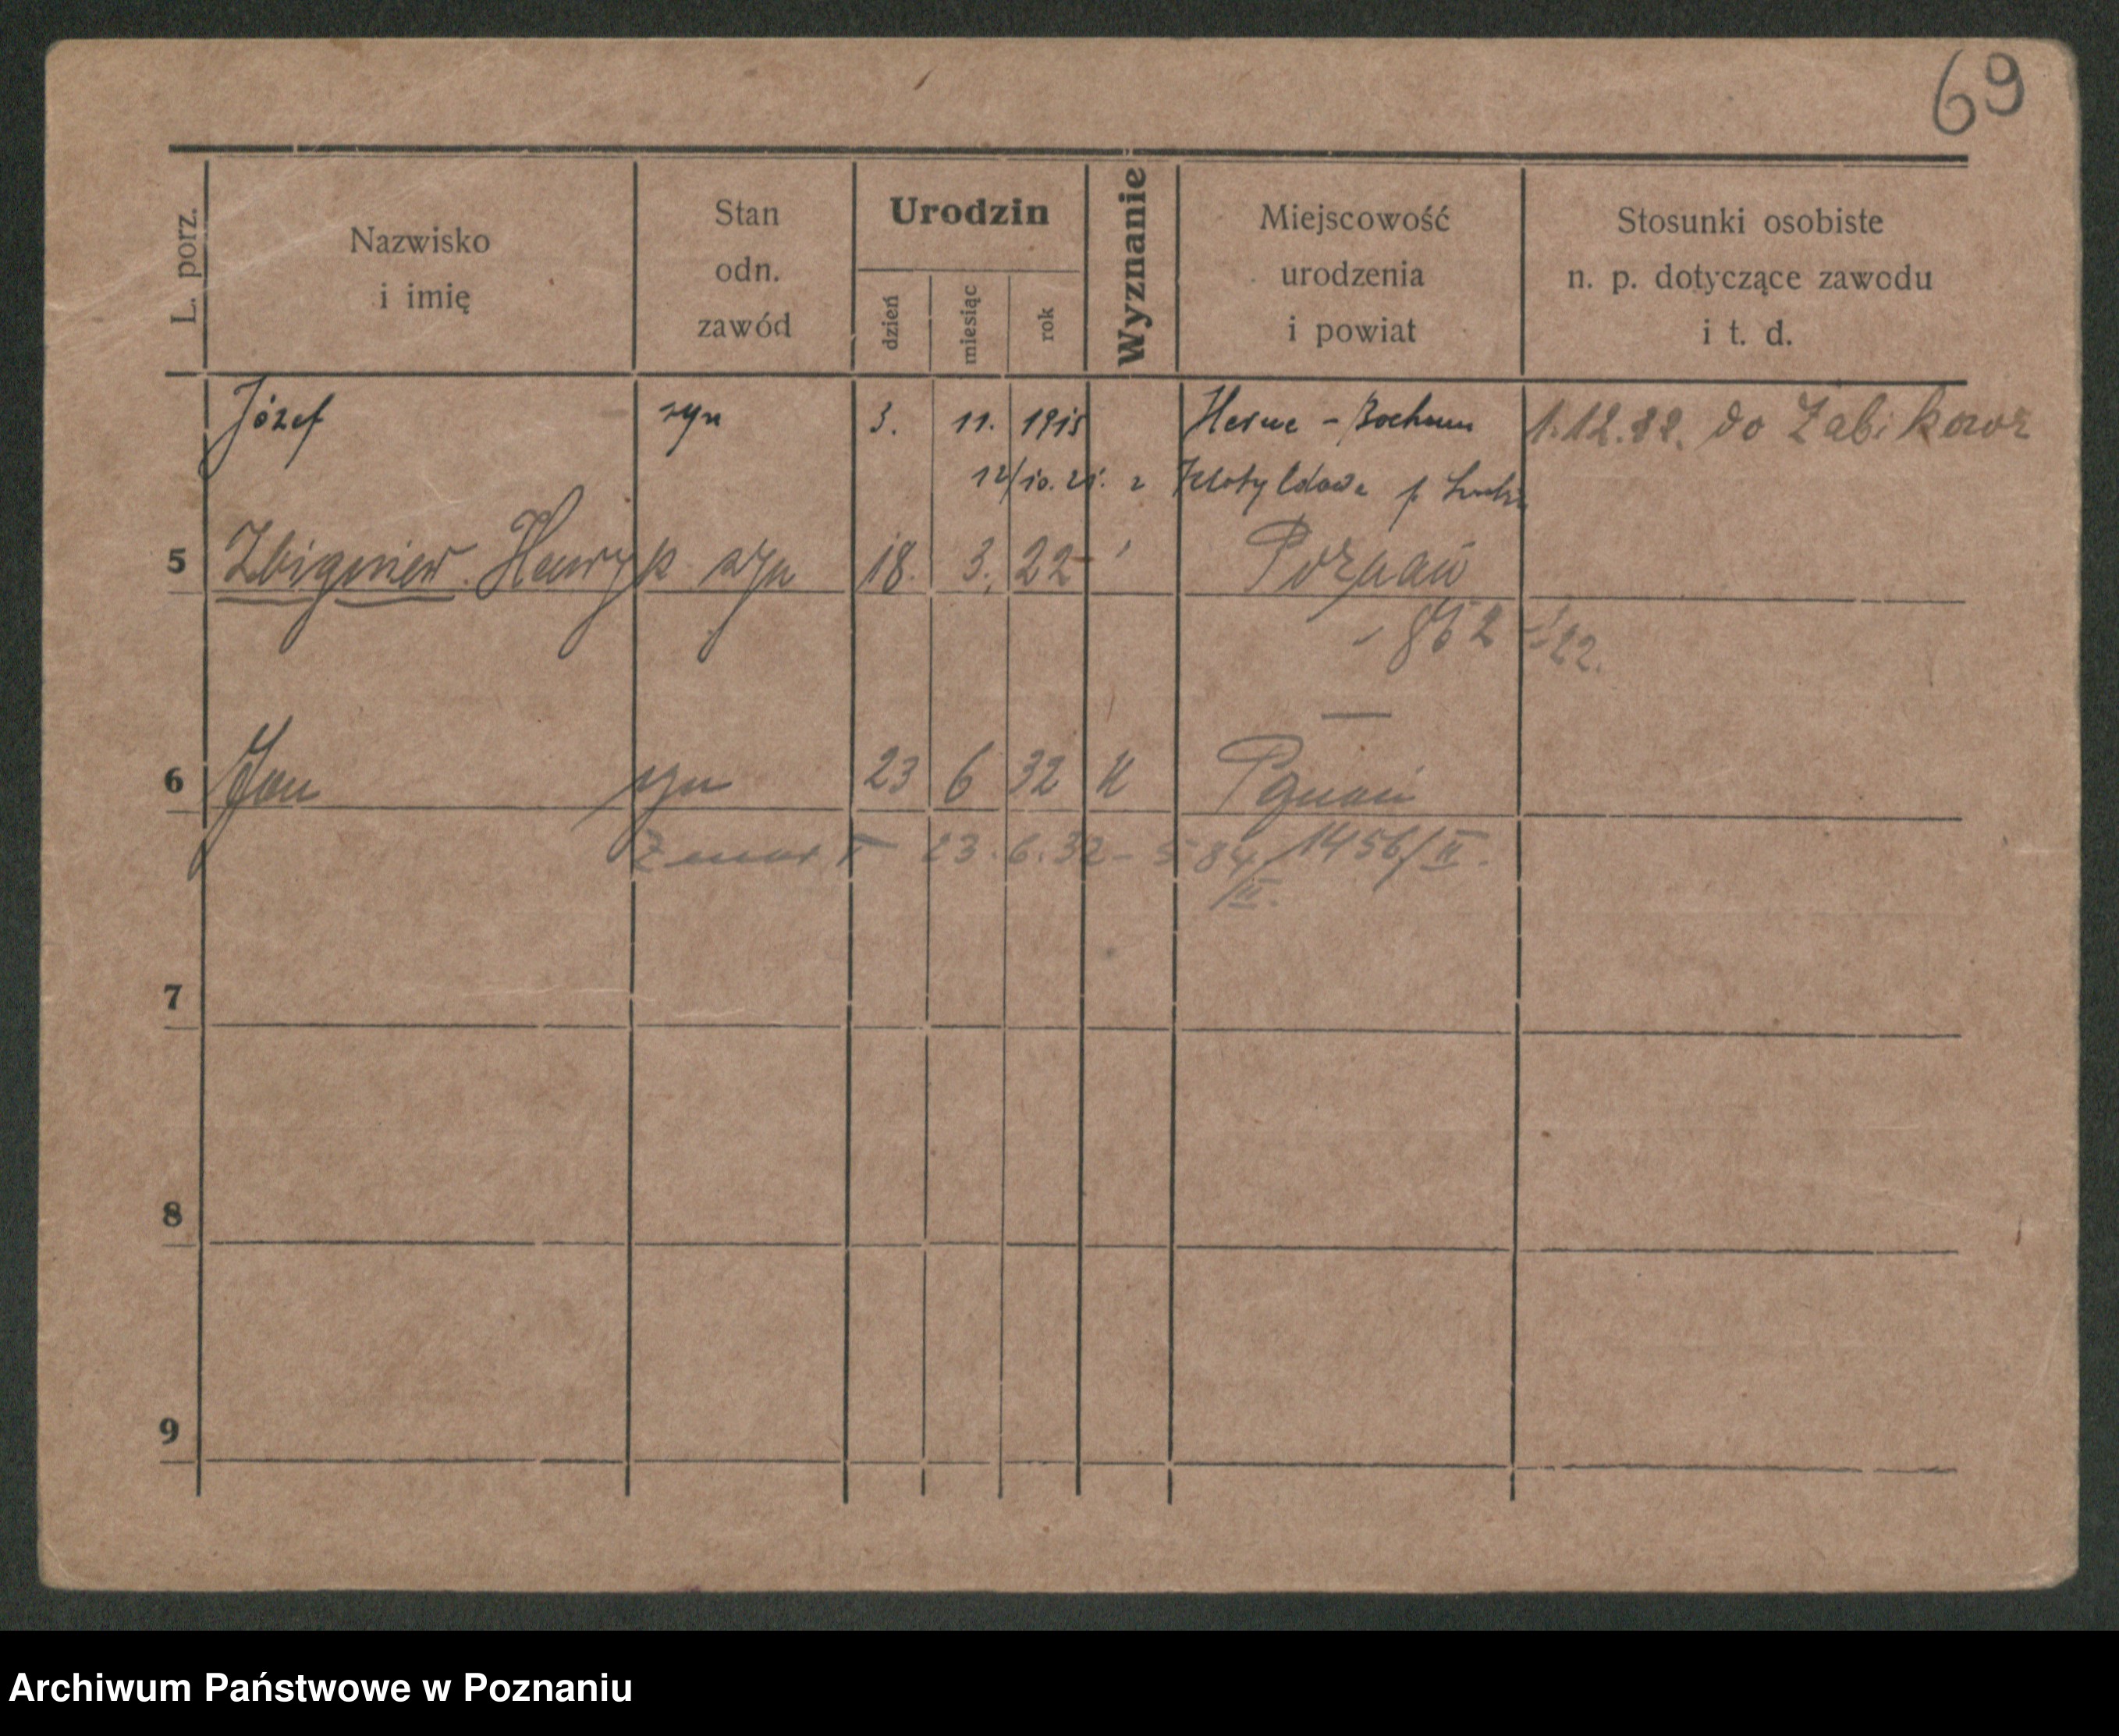 69
L. porz.
Nazwisko
i imię
Stan
odn.
zawód
Urodzin
dzień
miesiąc
rok
Wyznanie
Miejscowość
urodzenia
i powiat
Stosunki osobiste
n. p. dotyczące zawodu
i t. d.
Józef syn 3. 11. 1915 Herne - Bochum 1.12.32. do Żabikowa
12/10. 21. z
5 Zbigniew Henryk syn 18. 3. 22 Poznań
22.
6 Jan syn 23 6 32 K Pznań
Zmar ł 23.6.32 - 584/1456/II.
III.
7
8
9
Archiwum Państwowe w Poznaniu